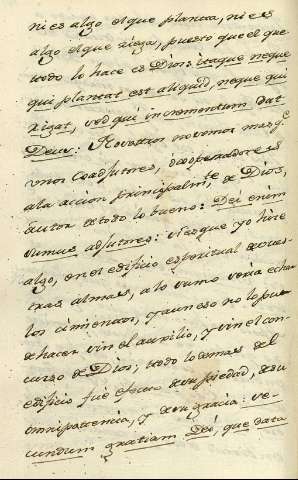 ni es algo el que planta, ni es
algo el que riega, puesto que el que
todo lo hace es Dios: itaque neque
qui plantat est aliquid, neque qui
rigat, sed qui incrementum dat
Deus: Nosotros no somos mas q.e
unos Coadjutores, cooperadores
a la accion principalm.te de Dios,
autor de todo lo bueno: Dei enim
sumus adjutores: si es que yo hize
algo, en el edificio espiritual de vues-
tras almas, a lo sumo seria echar
los cimientos, y aun eso no lo pu-
de hacer sin el auxilio, y sin el con-
curso de Dios; todo lo demas del
edificio fue efecto de su piedad, de su
omnipotencia, y de su gracia: se-
cundum gratiam Dei, que data